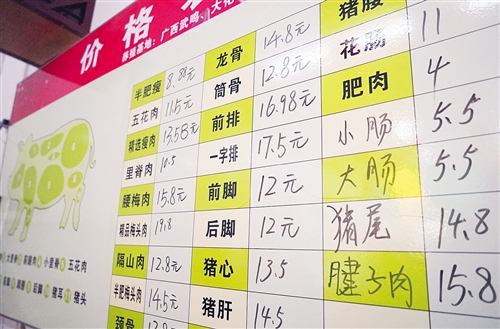 价格
养殖基地：广西武鸣、大化
半肥瘦 8.88元
五花肉 11.5元
精选瘦肉 13.58元
里脊肉 10.5
腰梅肉 15.8元
精品梅头肉 19.8
隔山肉 12.8元
半肥梅头肉 14.5元
颈骨
龙骨 14.8元
筒骨 12.8元
前排 16.98元
一字排 17.5元
前脚 12元
后脚 12元
猪心 13.5
猪肝 14.5
猪腰
花肠 11
肥肉 4
小肠 5.5
大肠 5.5
猪尾 14.8
腱子肉 15.8
五花肉
猪耳
猪头